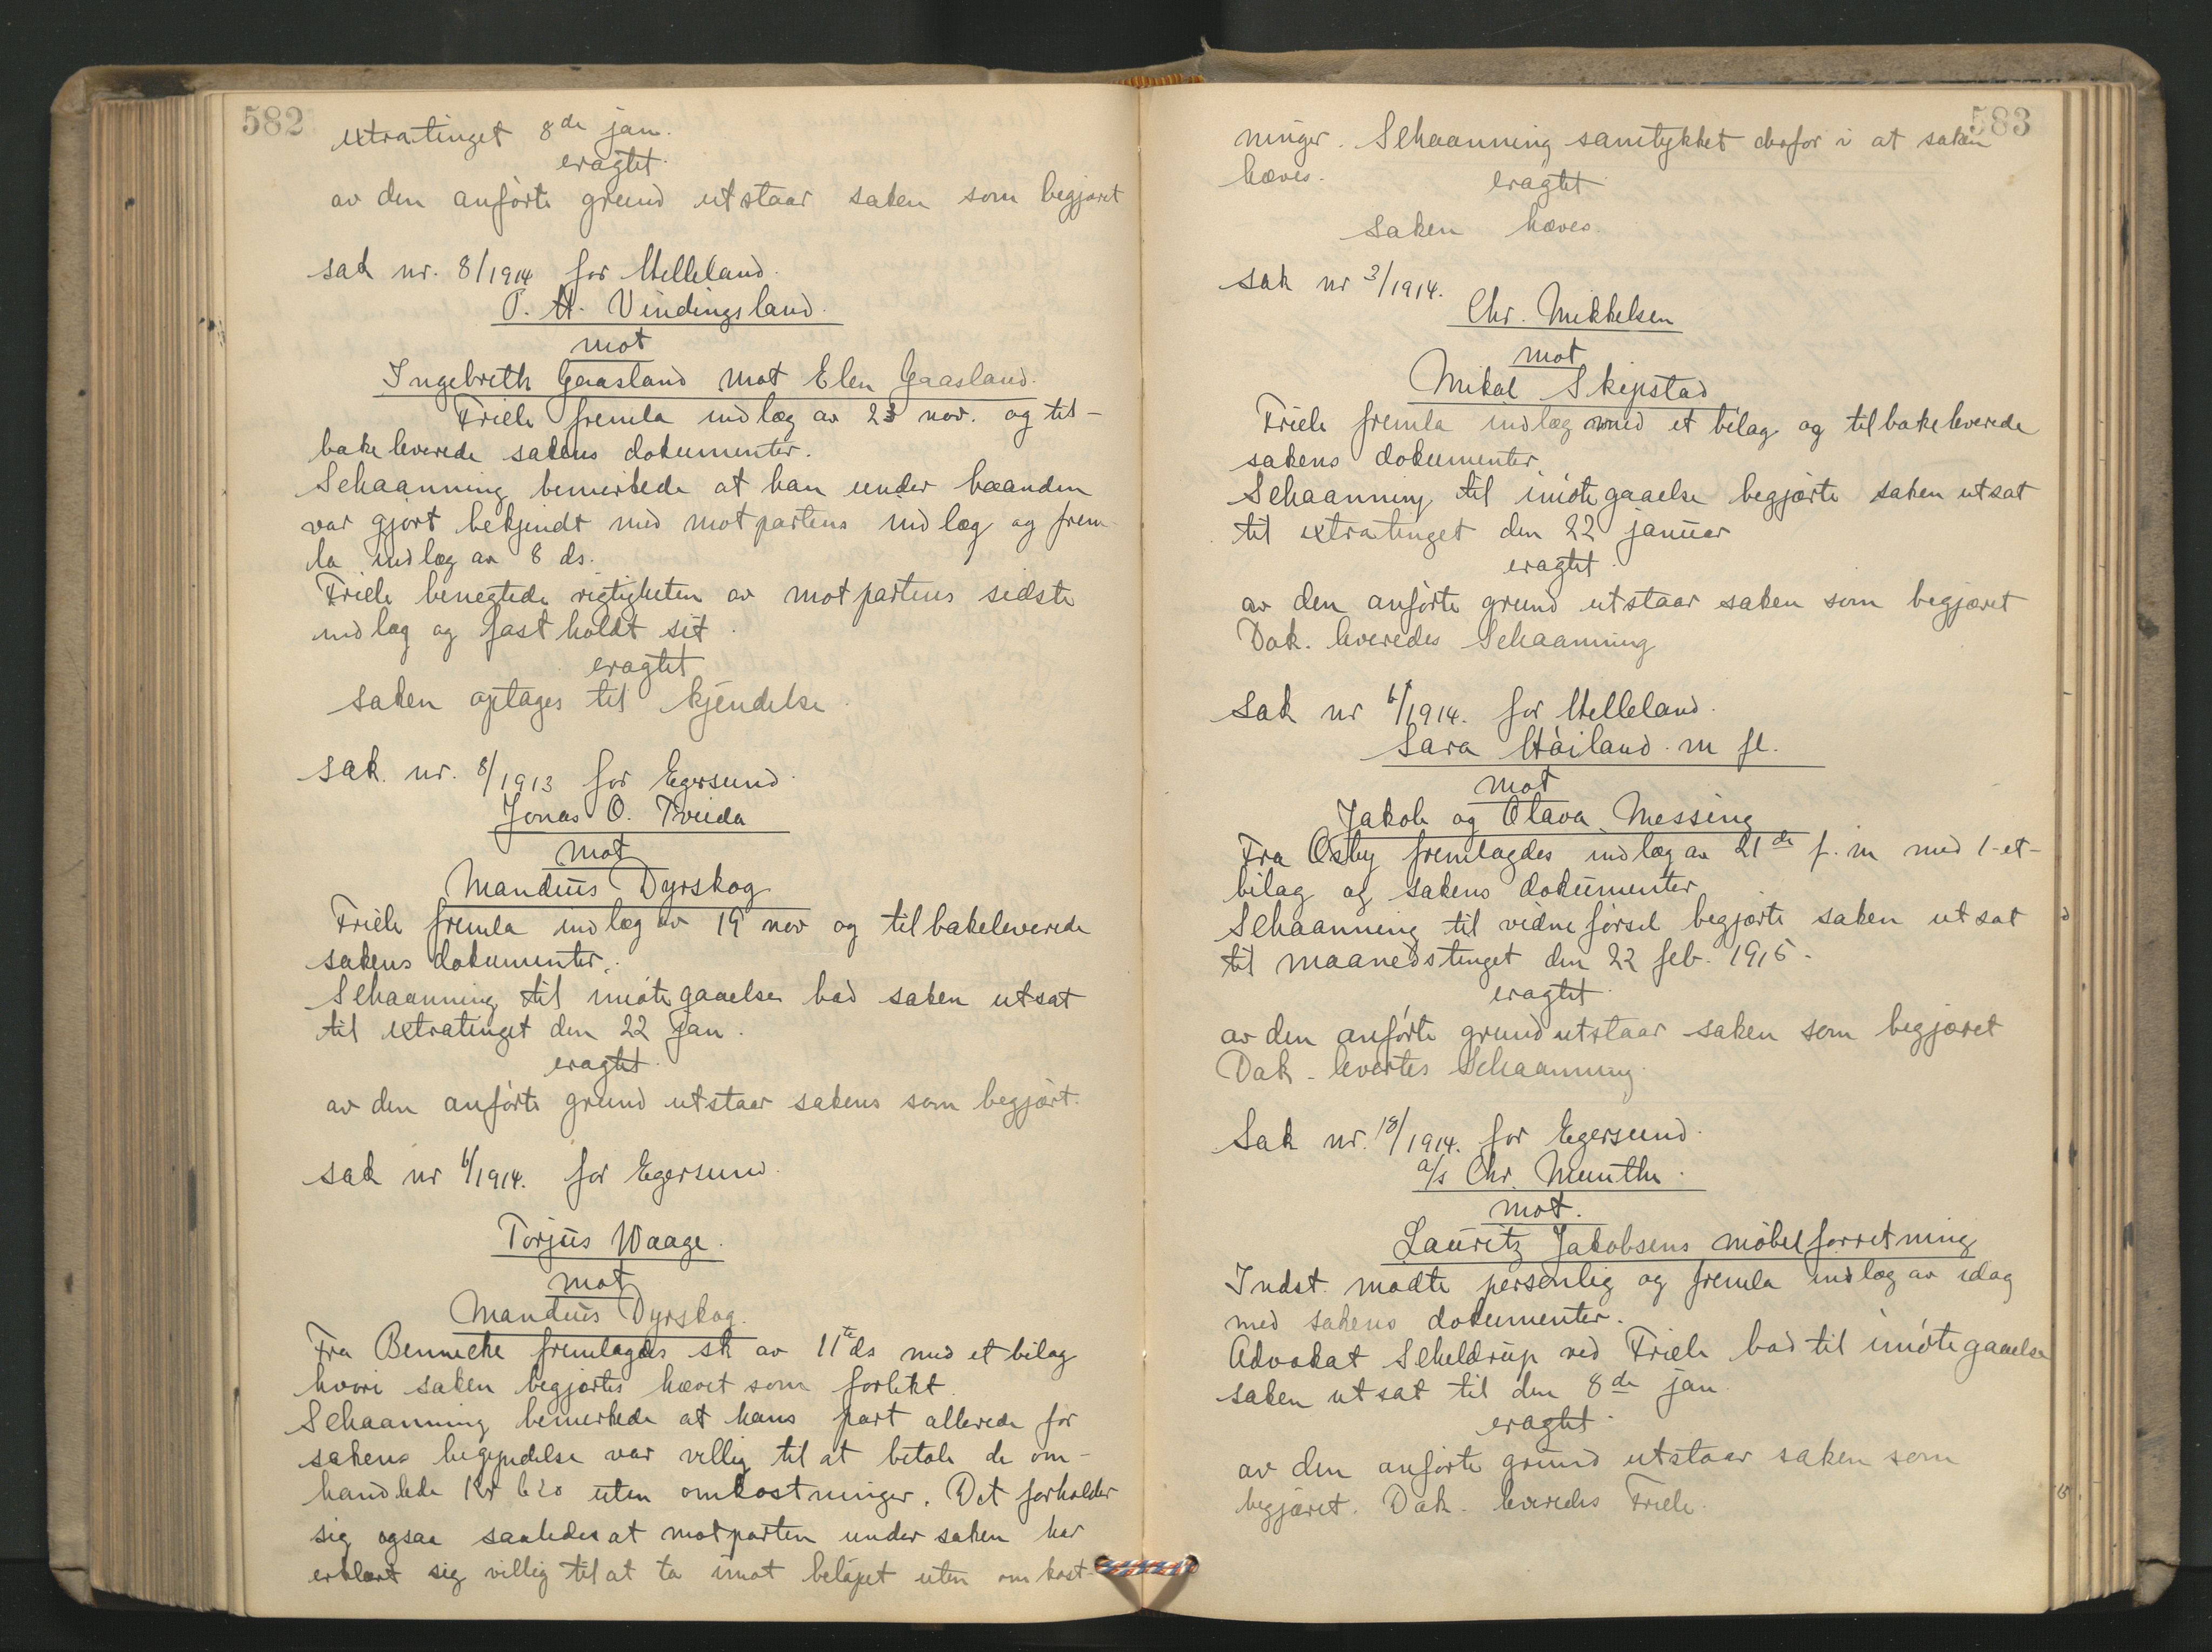 582
extratinget 8de jan.
eragtet.
av den anførte grund utstaar saken som begjæret
sak nr. 8/1914 for Helleland.
P. H. Vindingsland.
mot
Ingebreth Gaasland mot Elen Gaasland.
Friele fremla indlæg av 23 nov. og til-
bakeleverede sakens dokumenter.
Schaanning bemerkede at han under haanden
var gjort bekjendt med motpartens indlæg og frem-
la indlæg av 8 ds.
Friele benegtede rigtigheten av motpartens sidste
indlæg og fastholdt sit.
eragtet
saken optages til kjendelse.
sak. nr. 8/1913 for Egersund.
Jonas O. Tveida
mot
Mandius Dyrskog
Friele fremla indlæg av 19 nov og tilbakeleverede
sakens dokumenter.
Schaanning til imøtegaaelse bad saken utsat
til extratinget den 22 Jan.
eragtet.
av den anførte grund utstaar sakens som begjært.
sak nr 6/1914. for Egersund.
Torjus Waage.
mot
Mandius Dyrskog.
Fra Bennecke fremlagdes sk av 11te ds med et bilag
hvori saken begjærtes hævet som forlikt.
Schaanning bemerkede at hans part allerede før
sakens begyndelse var villig til at betale de om-
handlede Kr 620 uten omkostninger. Det forholder
sig ogsaa saaledes at motparten under saken har
erklært sig villig til at ta imot beløpet uten omkost-
583
ninger. Schaanning samtykket derfor i at saken
hæves.
eragtet
saken hæves.
sak nr 3/1914.
Chr. Mikkelsen
mot
Mikal Skipstad
Friele fremla indlæg med et bilag og tilbakeleverede
sakens dokumenter
Schaanning til imøtegaaelse begjærte saken utsat
til extratinget den 22 januar
eragtet.
av den anførte grund utstaar saken som begjæret
Dok. leveredes Schaanning
sak nr 6/1914. for Helleland.
Sara Høiland. m fl.
mot
Jakob og Olava Messing
Fra Osby fremlagdes indlæg av 21de f. m med 1-et-
bilag og sakens dokumenter
Schaanning til vidneførsel begjærte saken utsat
til maanedstinget den 22 feb. 1915.
eragtet.
av den anførte grund utstaar saken som begjæret
Dok. levertes Schaanning.
Sak nr. 18/1914. for Egersund.
a/s Chr. Munthe.
mot.
Lauritz Jakobsens møbelforretning
Indst. mødte personlig og fremla indlæg av idag
med sakens dokumenter.
Advokat Scheldrup ved Friele bad til imøtegaaelse
saken utsat til den 8de jan.
eragtet.
av den anførte grund utstaar saken som
begjæret. Dok. leveredes Friele.